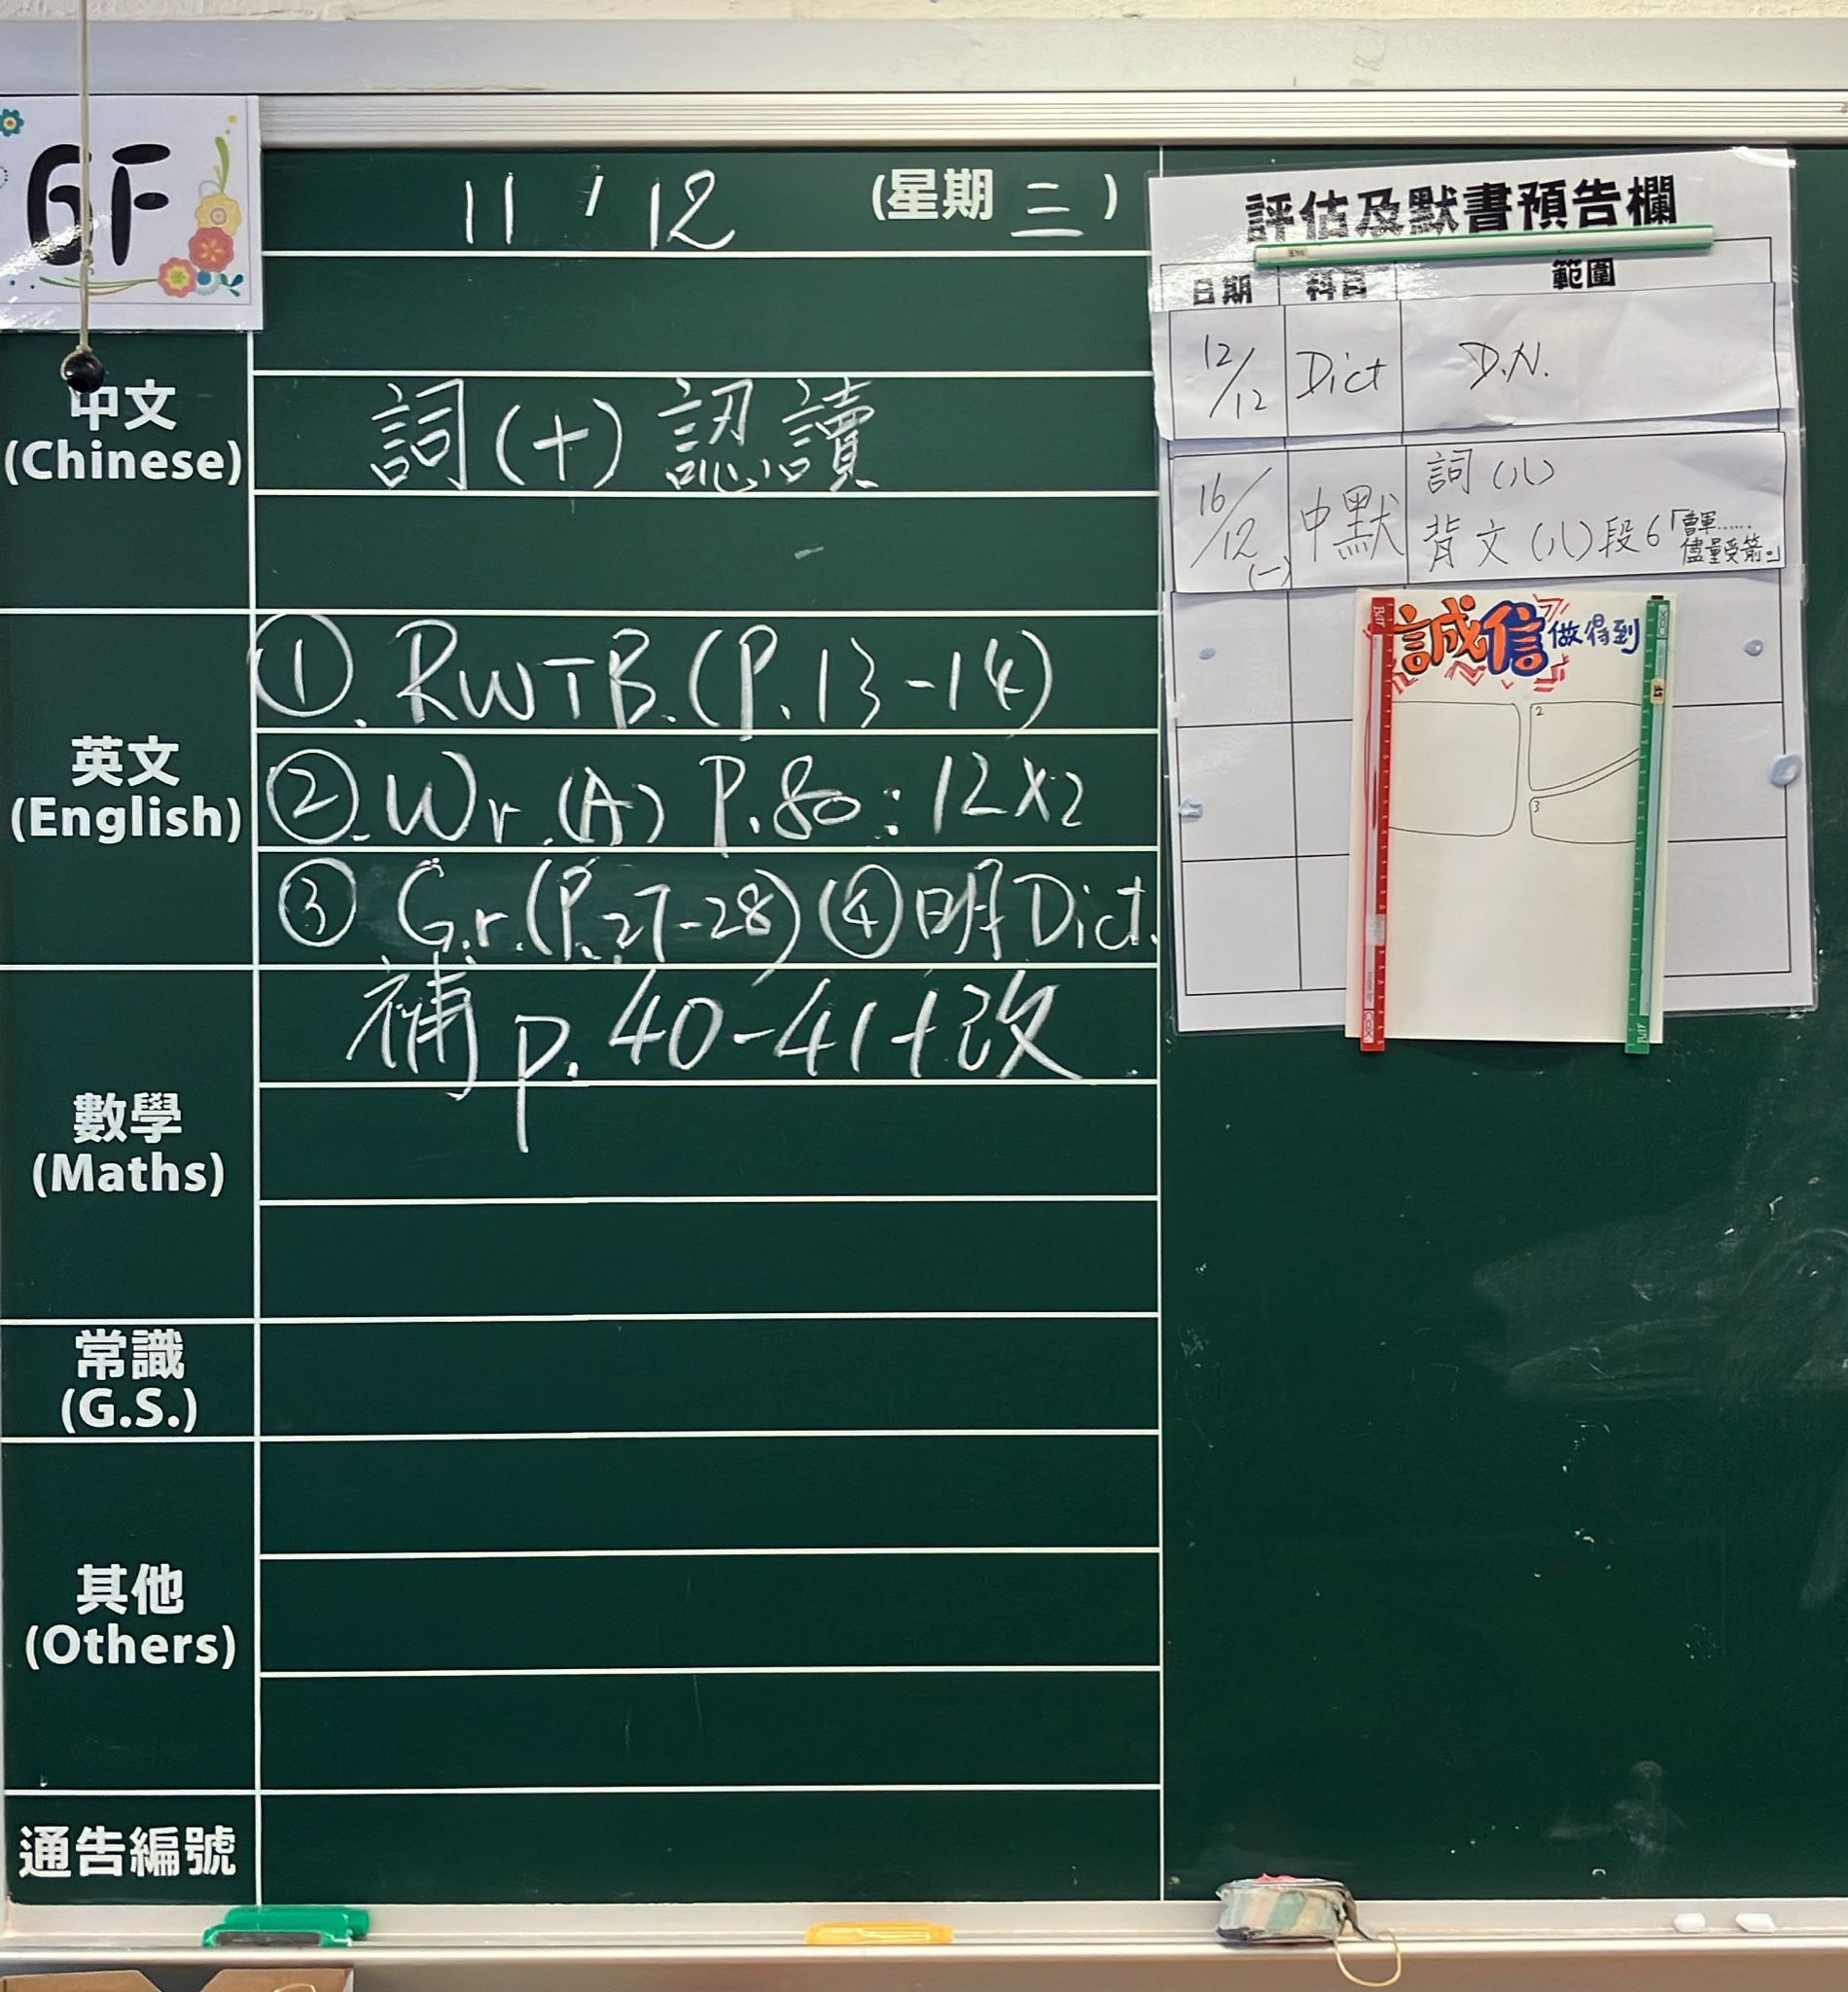 6F
11 / 12 (星期三)
中文
(Chinese)
詞(十)認讀
英文
(English)
①. RWTB. (P.13-14)
②. Wr.(A) P.80: 12x2
③ Gr.(P.27-28) ④明Dict.
數學
(Maths)
補 p.40-41+改
常識
(G.S.)
其他
(Others)
通告編號
評估及默書預告欄
日期 科目 範圍
12/12 Dict D.N.
16/12 (一) 中默 詞(八)
背文(八)段6「曹軍......
儘量受箭。」
誠信做得到
2
3